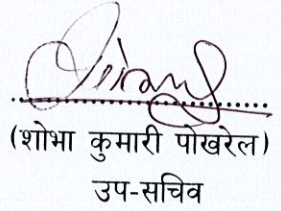 (शोभा कुमारी पोखरेल)
उप-सचिव